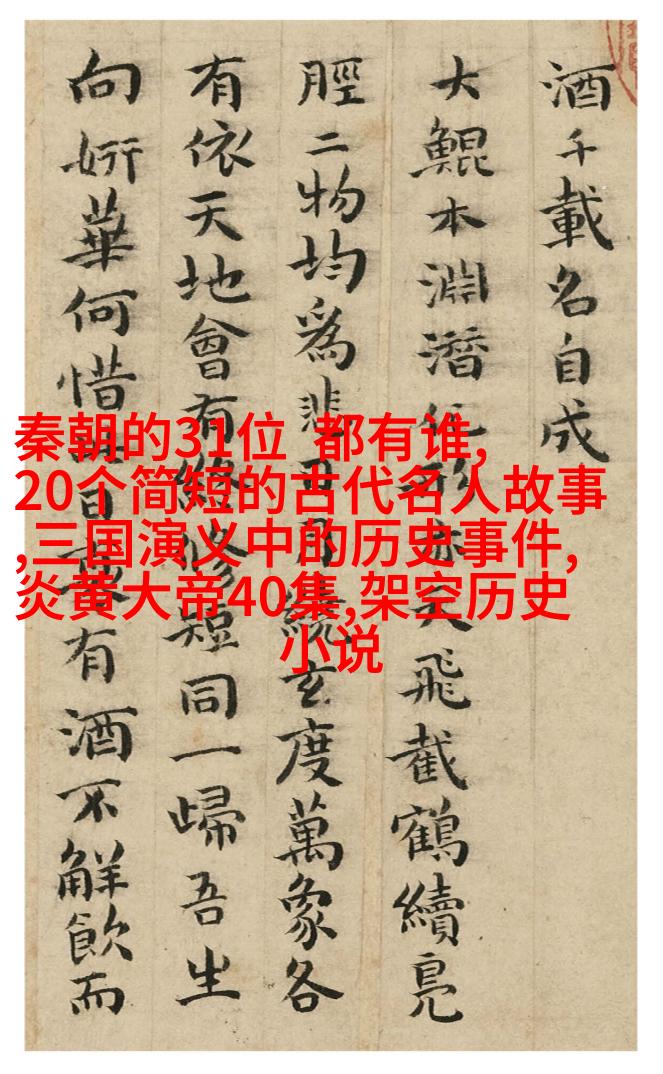 酒千載名自成
大鯤本淵潛化形亦天飛截鶴續鳧
脛二物均爲悲日月繞玄度萬象各
有依天地會有終修短同一歸吾生
向妍華何惜日有酒不觧飲而
秦朝的31位 都有谁,
20个简短的古代名人故事
,三国演义中的历史事件,
炎黄大帝40集,架空历史
小说